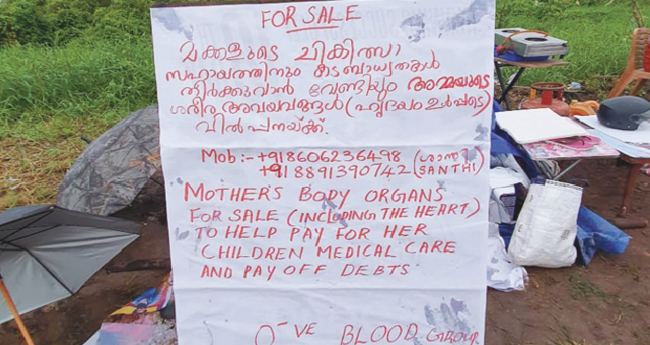 FOR SALE
മക്കളുടെ ചികിത്സാ
സഹായത്തിനും കടബാധ്യതകൾ
തീർക്കുവാൻ വേണ്ടിയും അമ്മയുടെ
ശരീര അവയവങ്ങൾ (ഹൃദയം ഉൾപ്പടെ)
വിൽപ്പനയ്ക്ക്.
Mob:- +918606236498 (ശാന്തി
+918891390742 (SANTHI)
MOTHER'S BODY ORGANS
FOR SALE (INCLUDING THE HEART)
TO HELP PAY FOR HER
CHILDREN MEDICAL CARE
AND PAY OFF DEBTS
O-VE BLOOD GROUP